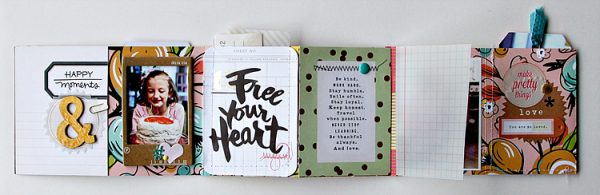 HAPPY
moments
&
SHEET NO.
Free
your
Heart
Be kind.
WORK HARD.
Stay humble.
Smile often.
Stay loyal.
Keep honest.
Travel
when possible.
NEVER STOP
LEARNING.
Be thankful
always.
And love.
make
pretty
things
love
You are so loved.